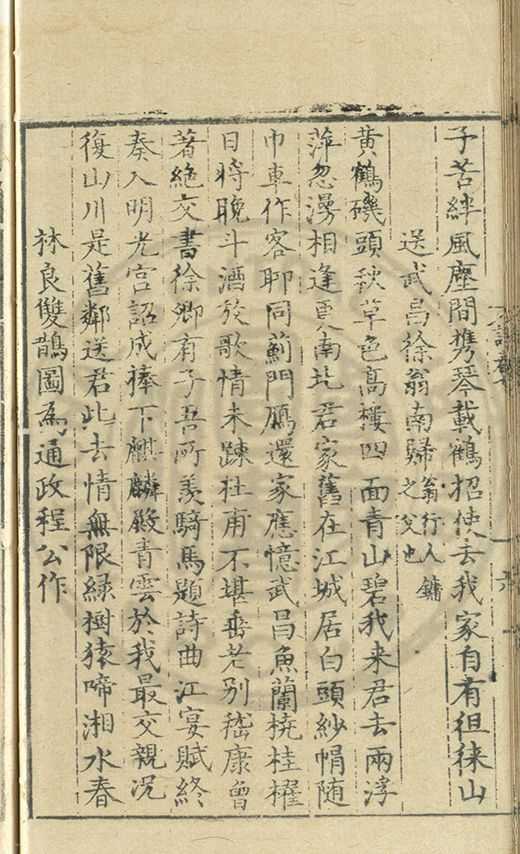 子苦絆風塵間携琴載鶴招使去我家自有徂徠山
送武昌徐翁南歸翁行人鏞之父也
黃鶴磯頭秋草色高樓四面青山碧我来君去兩浮
萍忽漫相逢更南北君家舊在江城居白頭紗帽随
巾車作客聊同薊門鴈還家應憶武昌魚蘭橈桂櫂
日將晚斗酒放歌情未踈杜甫不堪垂老别嵇康曾
著絶交書徐卿有子吾所羨騎馬題詩曲江宴賦終
奏入明光宫詔成捧下麒麟殿青雲於我最交親况
復山川是舊鄰送君此去情無限緑樹猿啼湘水春
林良雙鵲圖為通政程公作